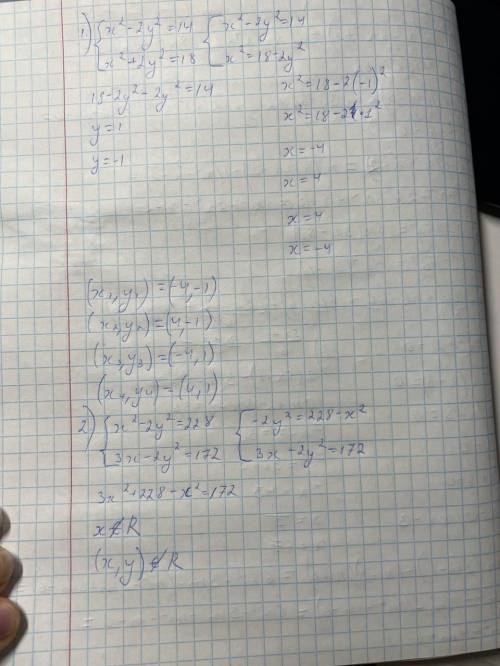 1) { x² - 2y² = 14 { x² - 2y² = 14
x² + 2y² = 18 x² = 18 - 2y²
18 - 2y² - 2y² = 14 x² = 18 - 2(-1)²
y = 1 x² = 18 - 2 · 1²
y = -1 x = -4
x = 4
x = 4
x = -4
(x₁, y₁) = (-4, -1)
(x₂, y₂) = (4, -1)
(x₃, y₃) = (-4, 1)
(x₄, y₄) = (4, 1)
2) { x² - 2y² = 228 { -2y² = 228 - x²
3x - 2y² = 172 3x - 2y² = 172
3x² + 228 - x² = 172
x ∉ R
(x, y) ∉ R